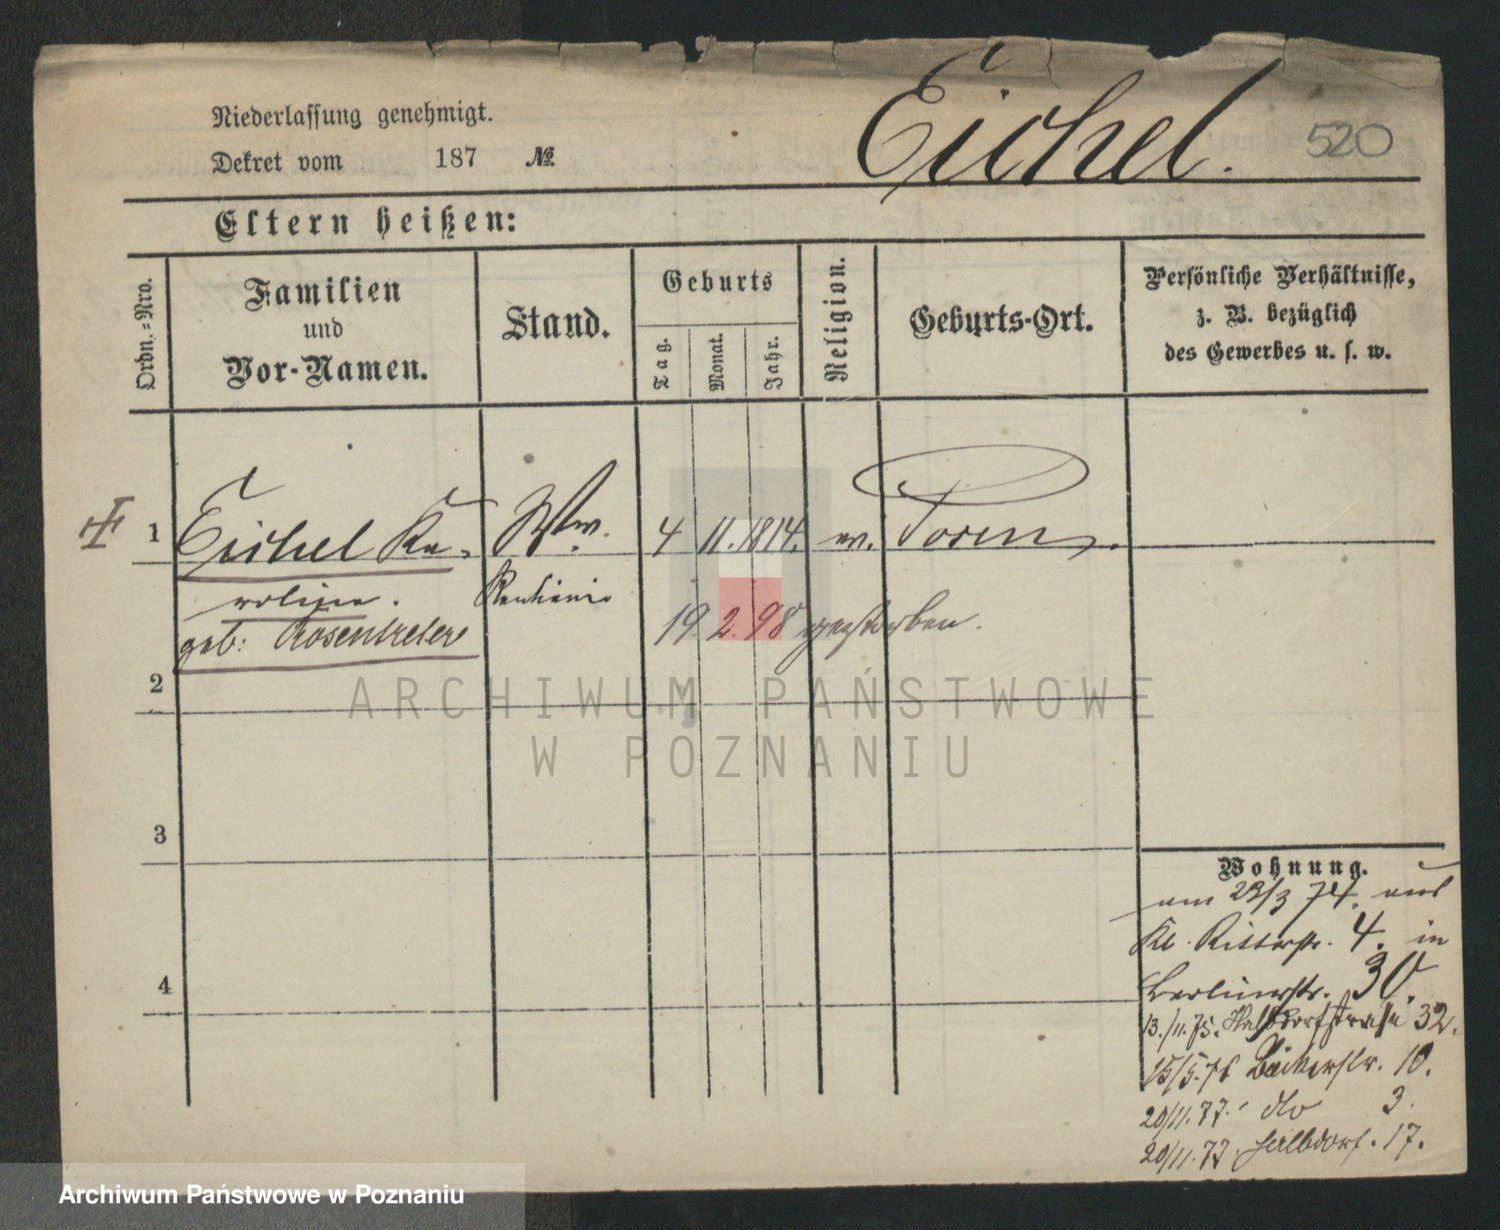 Eichel. 520
Niederlassung genehmigt.
Dekret vom 187 №
Eltern heißen:
Ordn.-Nro.
Familien
und
Vor-Namen.
Stand.
Geburts
Tag.
Monat.
Jahr.
Religion.
Geburts-Ort.
Persönliche Verhältnisse,
z. B. bezüglich
des Gewerbes u. s. w.
1 Eichel Ka- Ww. 4 11. 1814. ev. Posen
roline.
geb: 19. 2. 98 gestorben.
2
3
4
Wohnung.
am 23/3 74. aus
Kl. Ritterstr. 4. in
Berlinerstr. 30.
13./11.75. Halbdorfstraße 32.
15/5.76 Bäckerstr. 10.
20/11.77. dto 3.
20/11.77. Halbdorf. 17.
ARCHIWUM PAŃSTWOWE
W POZNANIU
Archiwum Państwowe w Poznaniu